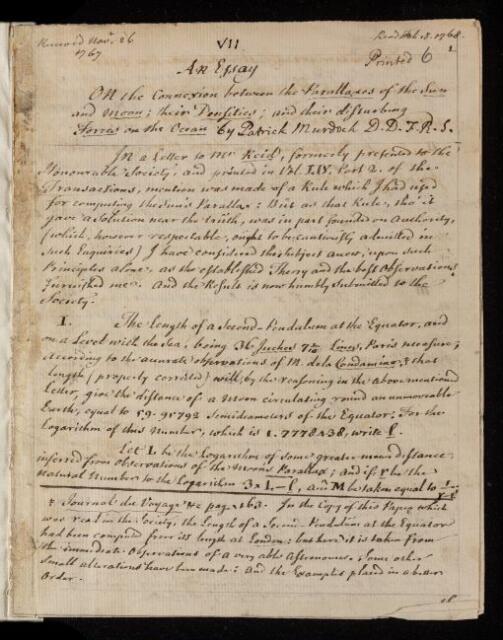 Received Nov.r 26
1767
VII
Read Feb. 18. 1768.
Printed 6
1
An Essay
On the Connexion between the Parallaxes of the Sun
and Moon; their Densities; and their disturbing
Forces on the Ocean by Patrick Murdoch D.D. F.R.S.
In a Letter to Mr Reid, formerly presented to the
Honourable Society, and printed in Vol. LIV. Part 2. of the
Transactions, mention was made of a Rule which I had us'd
for computing the Sun's Parallax: But as that Rule, tho' it
gave a Solution near the truth, was in part founded on Authority,
(which, however respectable, ought to be cautiously admitted in
such Enquiries) I have considered the subject anew, upon such
Principles alone, as the establish'd Theory and the best Observations
furnished me. And the Result is now humbly submitted to the
Society.
I. The length of a Second-Pendulum at the Equator, and
on a Level with the Sea, being 36 Inches 7 Lines, Paris measure;
According to the accurate observations of M. de la Condamine, ‡ that
length (properly corrected) will, by the reasoning in the above mentioned
Letter, give the distance of a Moon circulating round an unmoveable
Earth, equal to 59.91792 Semidiameters of the Equator; For the
Logarithm of this Number, which is 1.7775438, write l.
Let L be the Logarithm of some greater mean distance
inferred from observations of the Moon's Parallax; and if r be the
Natural Number to the Logarithm 3 x L - l, and M be taken equal to
‡ Journal du Voyage &c page 163. In the Copy of this Paper which
was read in the Society, the Length of a Second Pendulum at the Equator
had been computed from its length at London: but here it is taken from
the immediate Observations of a very able Astronomer. Some other
small alterations have been made: And the Examples placed in a better
Order.